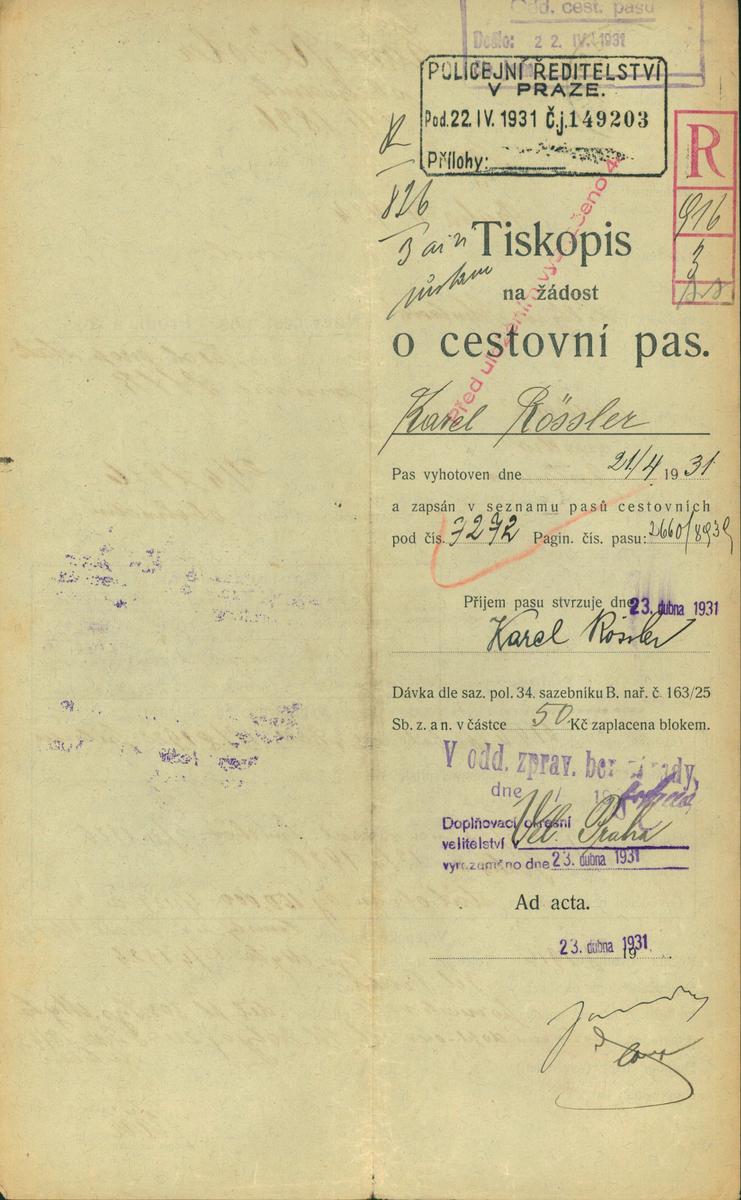 Odd. cest. pasů
Došlo: 22. IV. 1931
POLICEJNÍ ŘEDITELSTVÍ
V PRAZE.
Pod. 22. IV. 1931 Č.j. 149203
Přílohy:
R
R
826
916
3
Tiskopis
na žádost
o cestovní pas.
Karel Rössler
Pas vyhotoven dne 21/4 1931
a zapsán v seznamu pasů cestovních
pod čís. 7272 Pagin. čís. pasu: 2660/8939
Příjem pasu stvrzuje dne 23. dubna 1931
Karel Rössler
Dávka dle saz. pol. 34. sazebníku B. nař. č. 163/25
Sb. z. a n. v částce 50 Kč zaplacena blokem.
V odd. zprav. bez závady,
dne 19
Doplňovací okresní
velitelství v Vel. Praha
vyrozuměno dne 23. dubna 1931
Ad acta.
23. dubna 1931
19